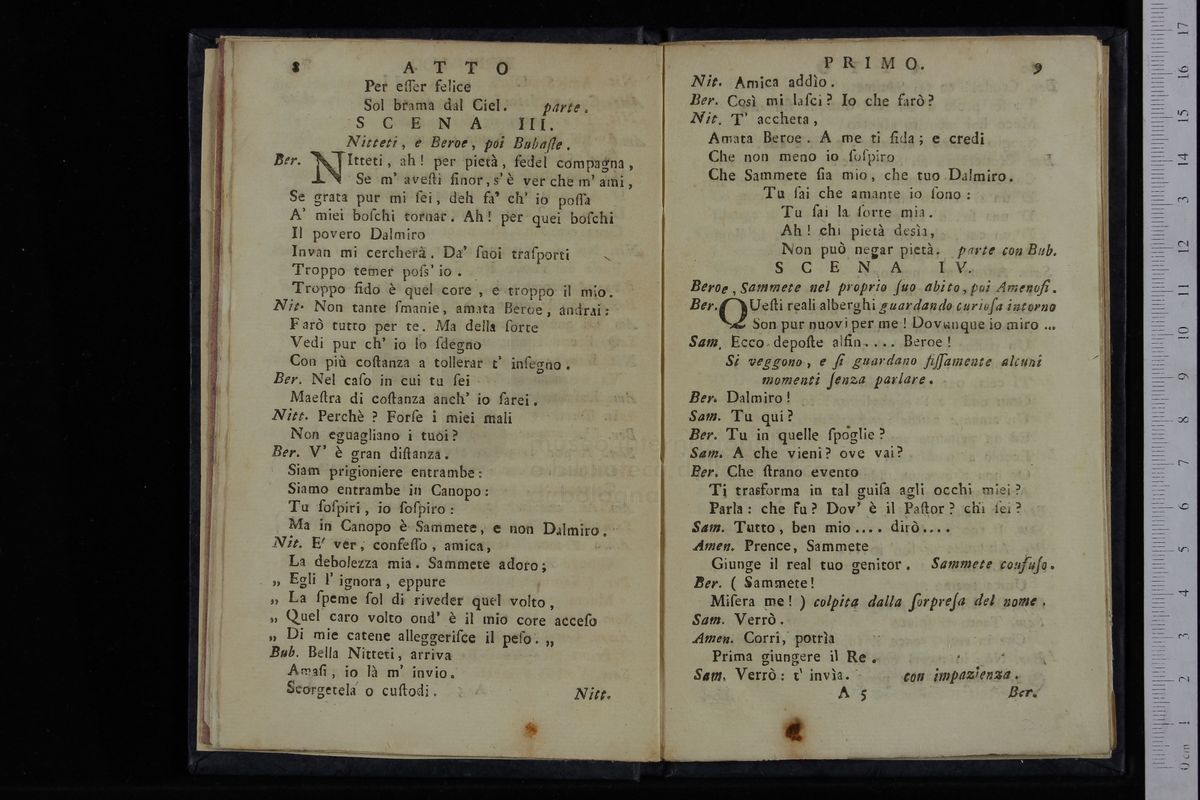 8 ATTO
Per eſſer felice
Sol brama dal Ciel. parte.
SCENA III.
Nitteti, e Beroe, poi Bubaſte.
Ber. NItteti, ah! per pietà, fedel compagna,
Se m' aveſti ſinor, s' è ver che m' ami,
Se grata pur mi ſei, deh fa' ch' io poſſa
A' miei boſchi tornar. Ah! per quei boſchi
Il povero Dalmiro
Invan mi cercherà. Da' ſuoi traſporti
Troppo temer poſs' io.
Troppo fido è quel core, e troppo il mio.
Nit. Non tante ſmanie, amata Beroe, andrai:
Farò tutto per te. Ma della ſorte
Vedi pur ch' io lo ſdegno
Con più coſtanza a tollerar t' inſegno.
Ber. Nel caſo in cui tu ſei
Maeſtra di coſtanza anch' io ſarei.
Nitt. Perchè? Forſe i miei mali
Non eguagliano i tuoi?
Ber. V' è gran diſtanza.
Siam prigioniere entrambe:
Siamo entrambe in Canopo:
Tu ſoſpiri, io ſoſpiro:
Ma in Canopo è Sammete, e non Dalmiro.
Nit. E' ver, confeſſo, amica,
La debolezza mia. Sammete adoro;
„ Egli l' ignora, eppure
„ La ſpeme ſol di riveder quel volto,
„ Quel caro volto ond' è il mio core acceſo
„ Di mie catene alleggeriſce il peſo. „
Bub. Bella Nitteti, arriva
Amaſi, io là m' invio.
Scorgetela o cuſtodi. Nitt.
PRIMO. 9
Nit. Amica addìo.
Ber. Così mi laſci? Io che farò?
Nit. T' accheta,
Amata Beroe. A me ti fida; e credi
Che non meno io ſoſpiro
Che Sammete ſia mio, che tuo Dalmiro.
Tu ſai che amante io ſono:
Tu ſai la ſorte mia.
Ah! chi pietà desìa,
Non può negar pietà. parte con Bub.
SCENA IV.
Beroe, Sammete nel proprio ſuo abito, poi Amenofi.
Ber. QUeſti reali alberghi guardando curioſa intorno
Son pur nuovi per me! Dovunque io miro ...
Sam. Ecco depoſte alfin.... Beroe!
Si veggono, e ſi guardano fiſſamente alcuni
momenti ſenza parlare.
Ber. Dalmiro!
Sam. Tu qui?
Ber. Tu in quelle ſpoglie?
Sam. A che vieni? ove vai?
Ber. Che ſtrano evento
Ti trasforma in tal guiſa agli occhi miei?
Parla: che fu? Dov' è il Paſtor? chi ſei?
Sam. Tutto, ben mio.... dirò....
Amen. Prence, Sammete
Giunge il real tuo genitor. Sammete confuſo.
Ber. ( Sammete!
Miſera me! ) colpita dalla ſorpreſa del nome.
Sam. Verrò.
Amen. Corri, potrìa
Prima giungere il Re.
Sam. Verrò: t' invìa. con impazienza.
A 5 Ber.
0 cm 1 2 3 4 5 6 7 8 9 10 11 12 13 14 15 16 17